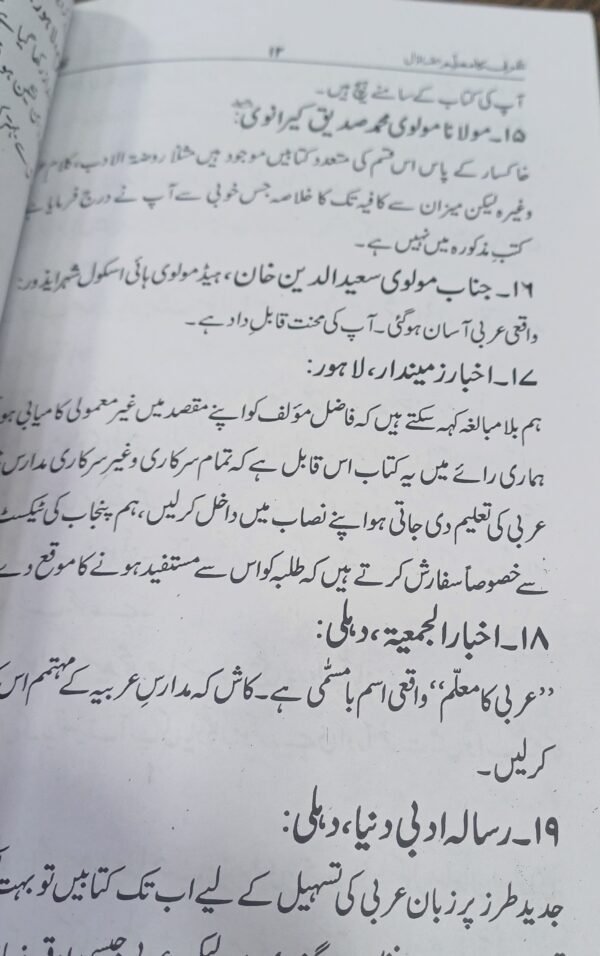 ۱۴
آپ کی کتاب کے سامنے ہیچ ہیں۔
۱۵۔ مولانا مولوی محمد صدیق کیرانوی:
خاکسار کے پاس اس قسم کی متعدد کتابیں موجود ہیں مثلاً روضۃ الادب، کلام
وغیرہ لیکن میزان سے کافیہ تک کا خلاصہ جس خوبی سے آپ نے درج فرمایا ہے
کتب مذکورہ میں نہیں ہے۔
۱۶۔ جناب مولوی سعید الدین خان، ہیڈ مولوی ہائی اسکول شہر
واقعی عربی آسان ہوگئی۔ آپ کی محنت قابلِ داد ہے۔
۱۷۔ اخبار زمیندار، لاہور:
ہم بلا مبالغہ کہہ سکتے ہیں کہ فاضل مؤلف کو اپنے مقصد میں غیر معمولی کامیابی
ہماری رائے میں یہ کتاب اس قابل ہے کہ تمام سرکاری و غیر سرکاری مدارس
عربی کی تعلیم دی جاتی ہو اپنے نصاب میں داخل کرلیں، ہم پنجاب کی ٹیکسٹ
سے خصوصاً سفارش کرتے ہیں کہ طلبہ کو اس سے مستفید ہونے کا موقع دے
۱۸۔ اخبار الجمعیۃ، دہلی:
”عربی کا معلّم“ واقعی اسم بامسمّٰی ہے۔ کاش کہ مدارسِ عربیہ کے مہتمم اس
کرلیں۔
۱۹۔ رسالہ ادبی دنیا، دہلی:
جدید طرز پر زبان عربی کی تسہیل کے لیے اب تک کتابیں تو بہت